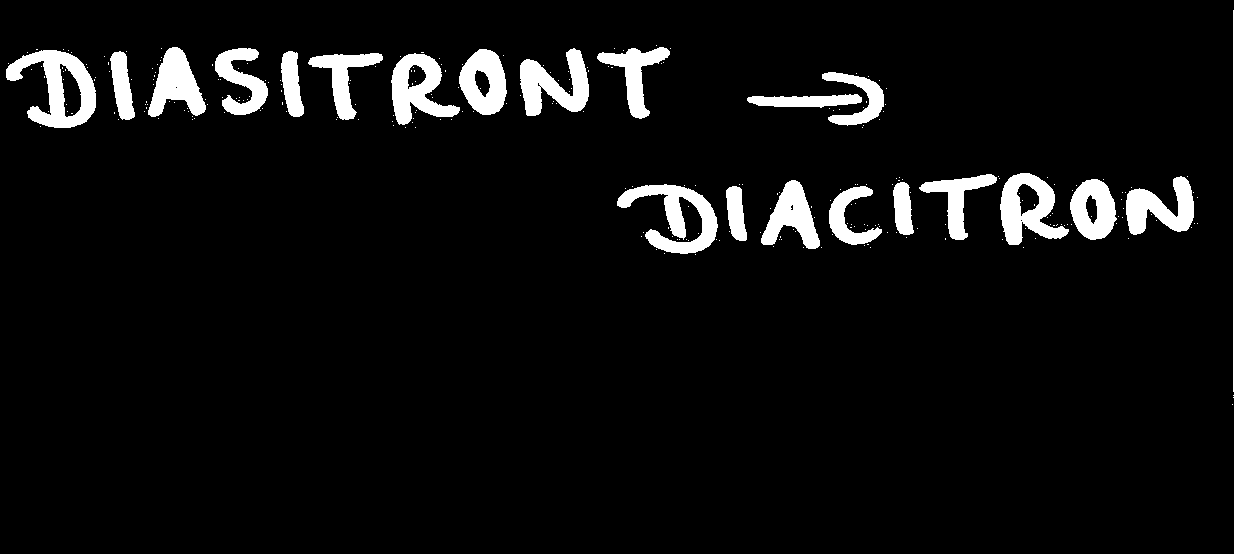 DIASITRONT →
DIACITRON